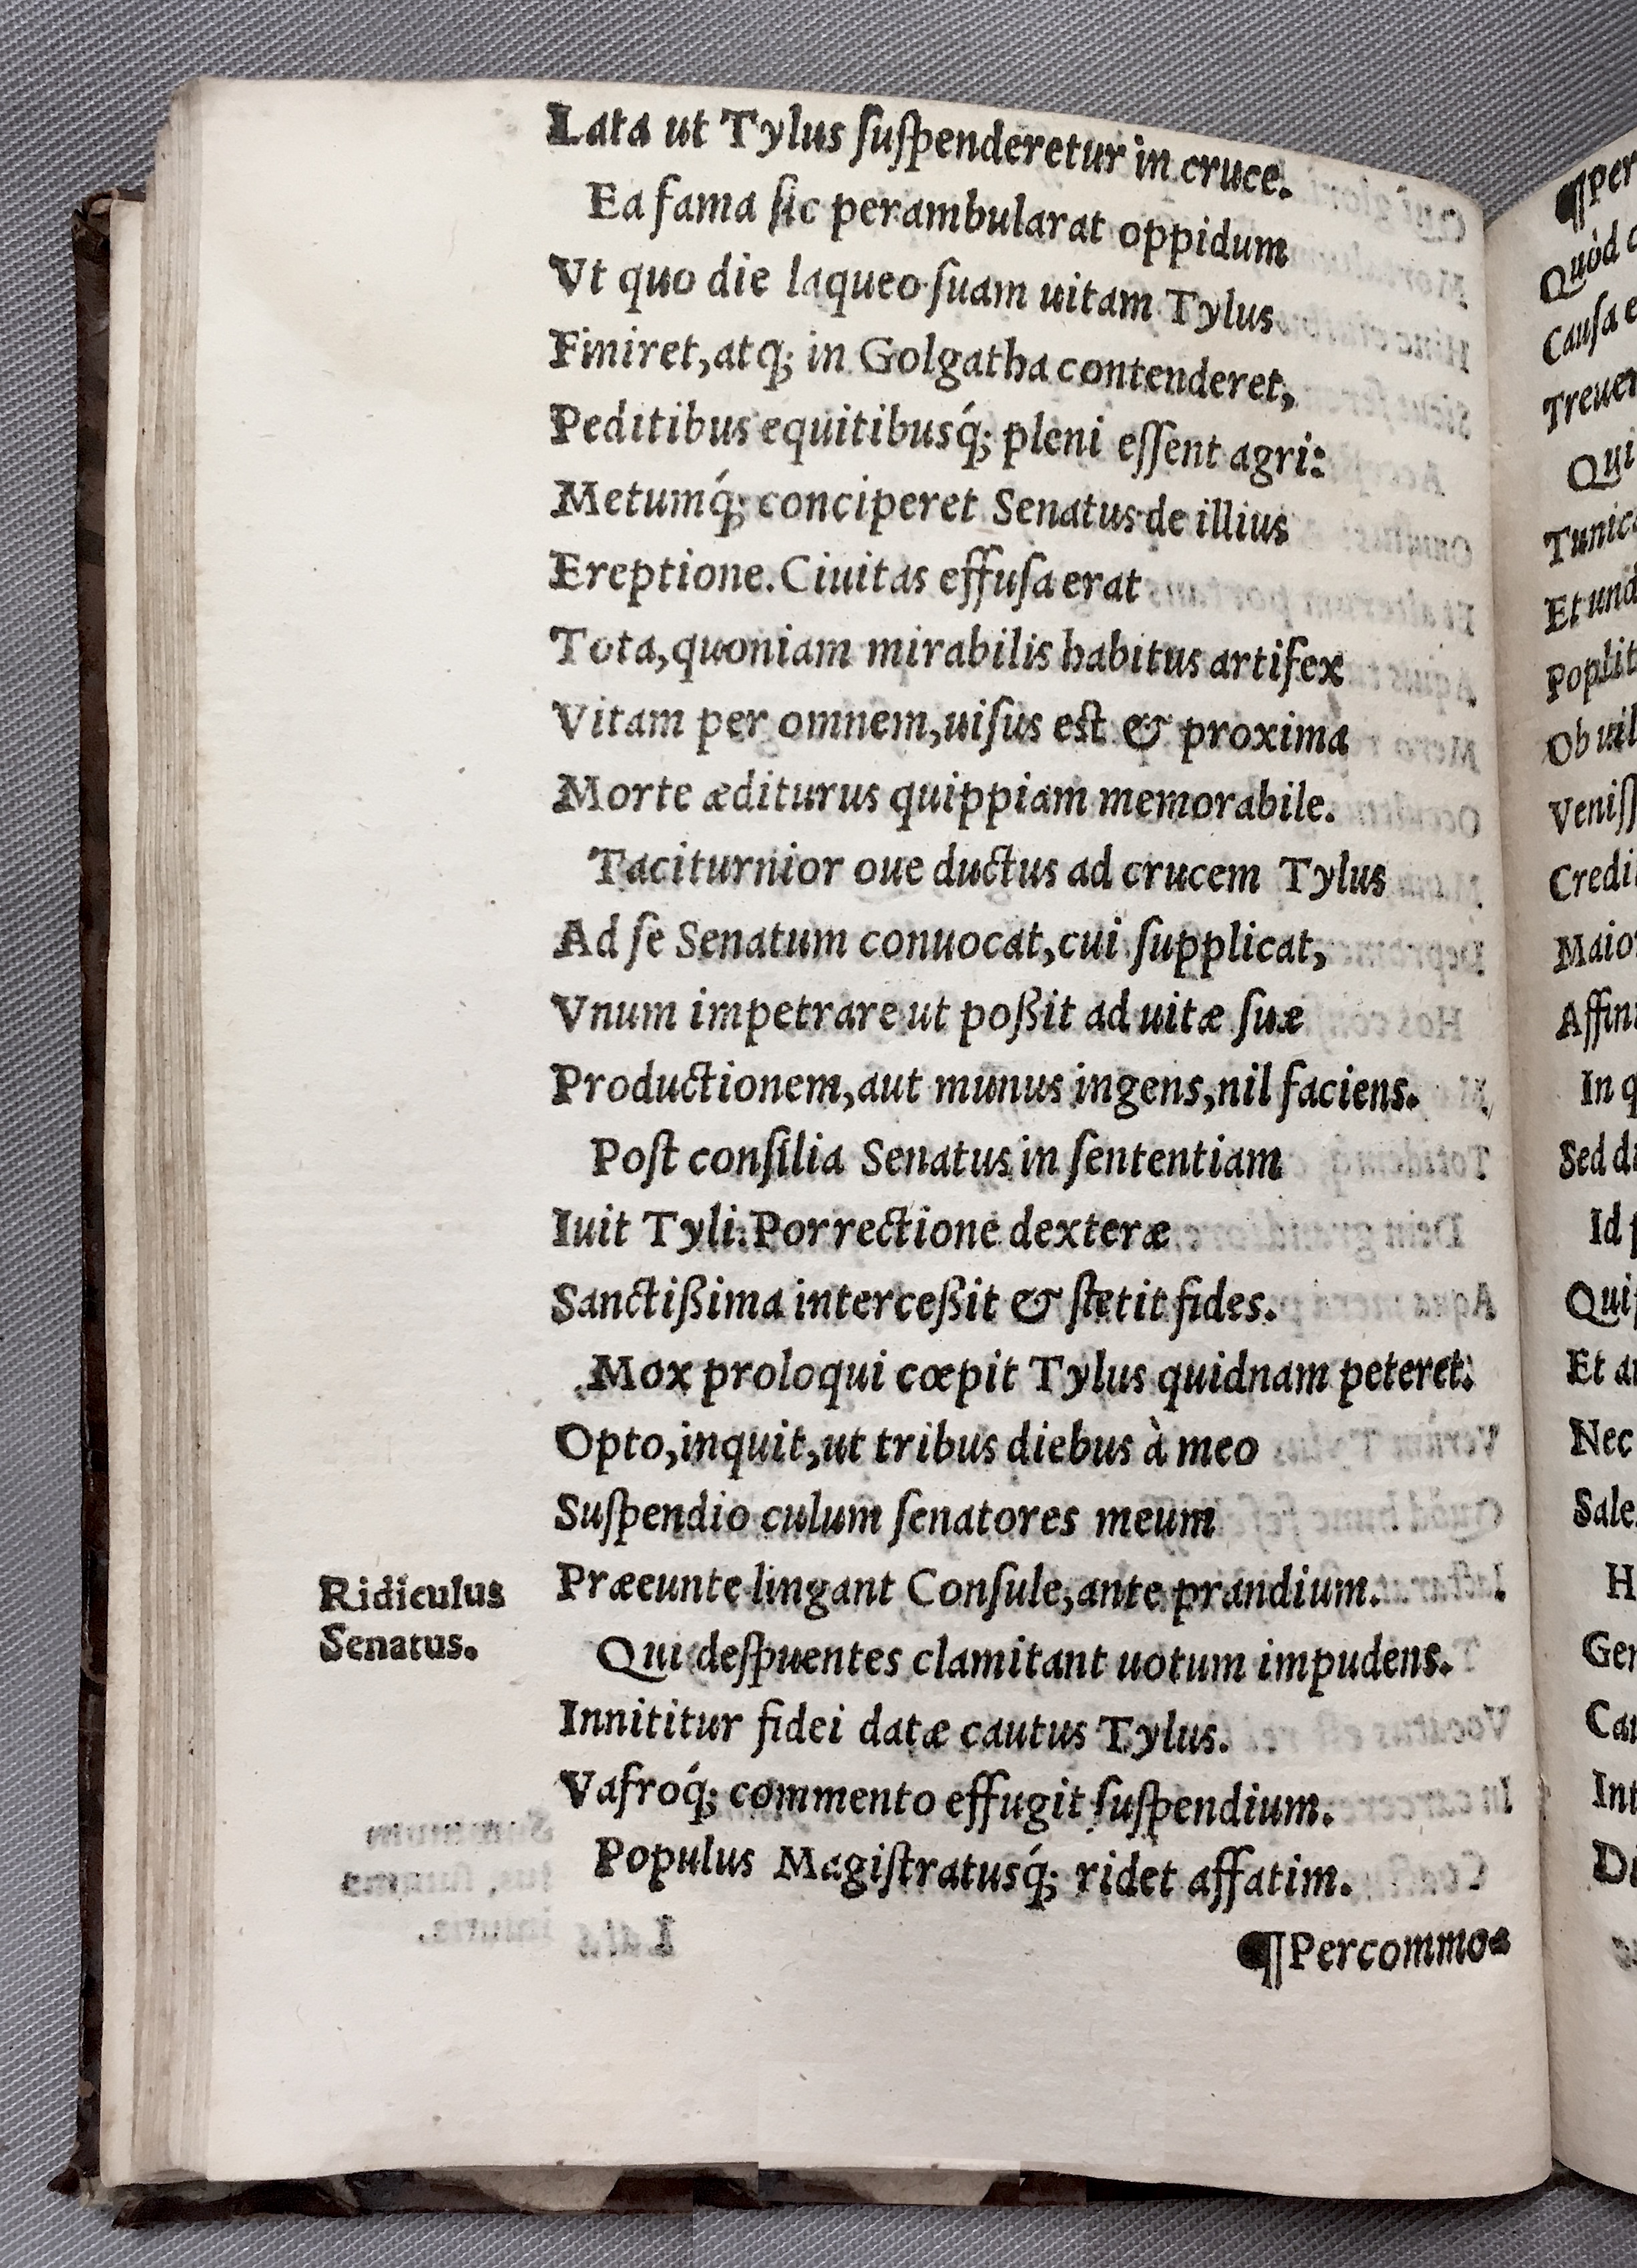 Lata ut Tylus ſuſpenderetur in cruce.
Ea fama ſic perambularat oppidum
Vt quo die laqueo ſuam uitam Tylus
Finiret, atq; in Golgatha contenderet,
Peditibus equitibusq́; pleni eſſent agri:
Metumq́; conciperet Senatus de illius
Ereptione. Ciuitas effuſa erat
Tota, quoniam mirabilis habitus artifex
Vitam per omnem, uiſus eſt & proxima
Morte æditurus quippiam memorabile.
Taciturnior oue ductus ad crucem Tylus
Ad ſe Senatum conuocat, cui ſupplicat,
Vnum impetrare ut poßit ad uitæ ſuæ
Productionem, aut munus ingens, nil faciens.
Poſt conſilia Senatus in ſententiam
Iuit Tyli: Porrectione dexteræ
Sanctißima interceßit & ſtetit fides.
Mox proloqui cœpit Tylus quidnam peteret:
Opto, inquit, ut tribus diebus à meo
Suſpendio culum ſenatores meum
Præeunte lingant Conſule, ante prandium.
Ridiculus
Senatus.
Qui deſpuentes clamitant uotum impudens.
Innititur fidei datæ cautus Tylus.
Vafroq́; commento effugit ſuſpendium.
Populus Magiſtratusq́; ridet affatim.
¶Percommo⸗
¶Per
Quòd
Cauſa
Treuer
Qui
Tunic
Et und
Poplit
Ob uil
Veniſſ
Credi
Maior
Affini
In q
Sed di
Id
Qui
Et
Nec
Sale
H
Ger
Int